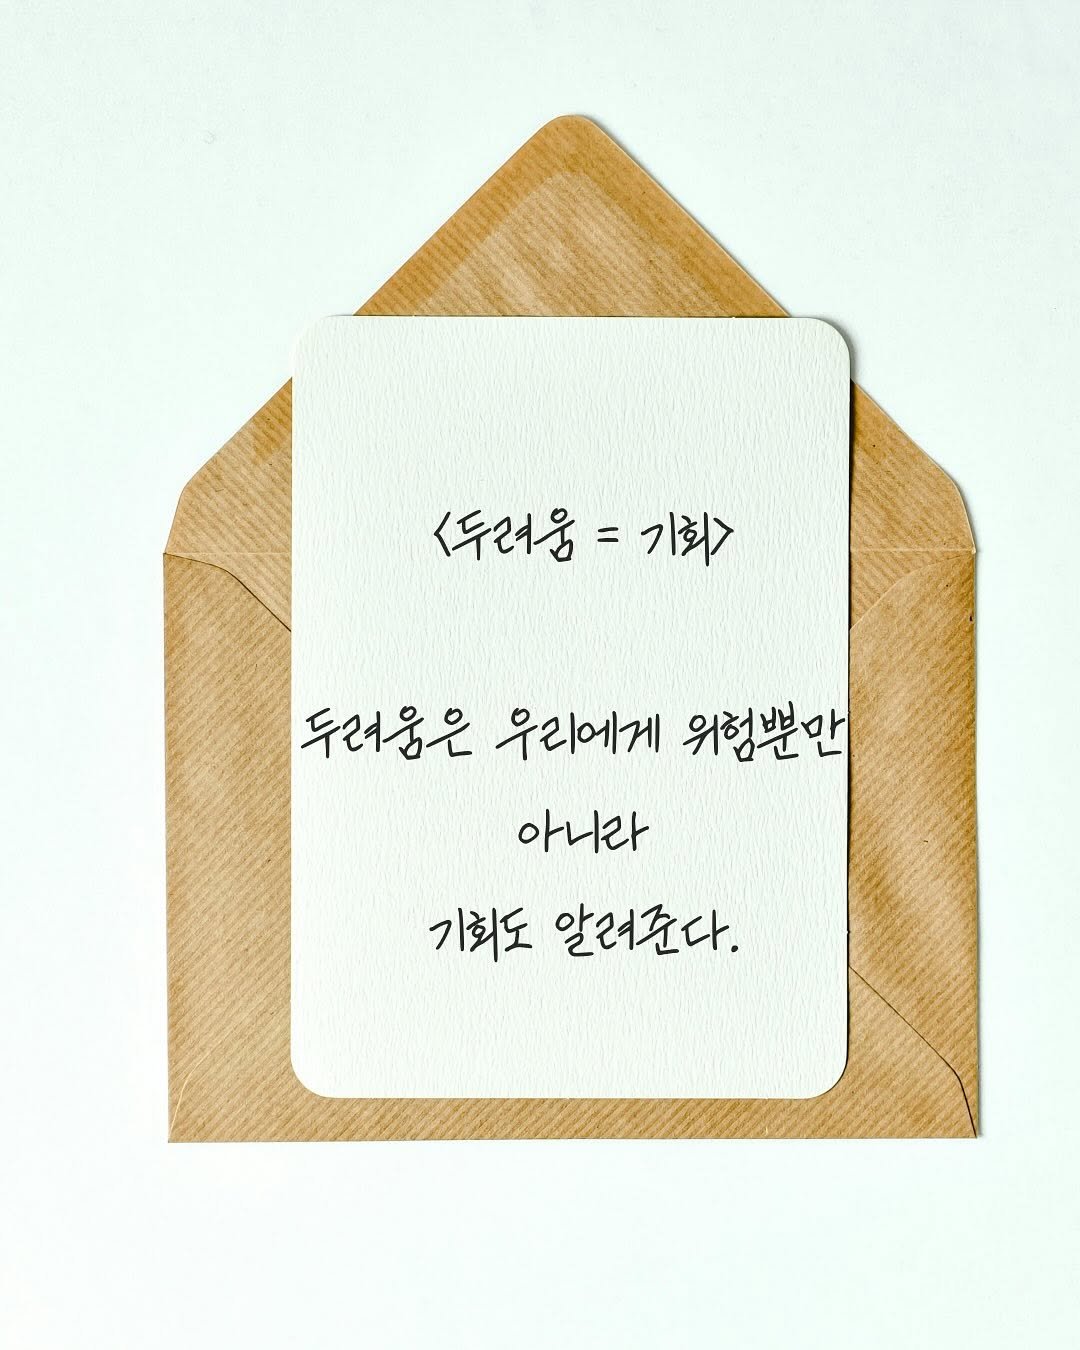 <두려움 = 기회>
두려움은 우리에게 위험뿐만
아니라
기회도 알려준다.